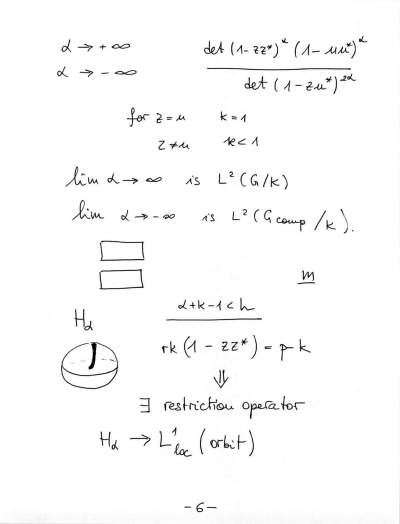 α → +∞
α → -∞
det (1-zz*)^α (1-uu*)^α
det (1-zu*)^2α
for z=u k=1
z≠u k<1
lim α→∞ is L²(G/K)
lim α→-∞ is L²(G comp/K).
m
H_α
α+k-1<h
rk(1-zz*)=p-k
⇓
∃ restriction operator
H_α → L¹_loc (orbit)
-6-